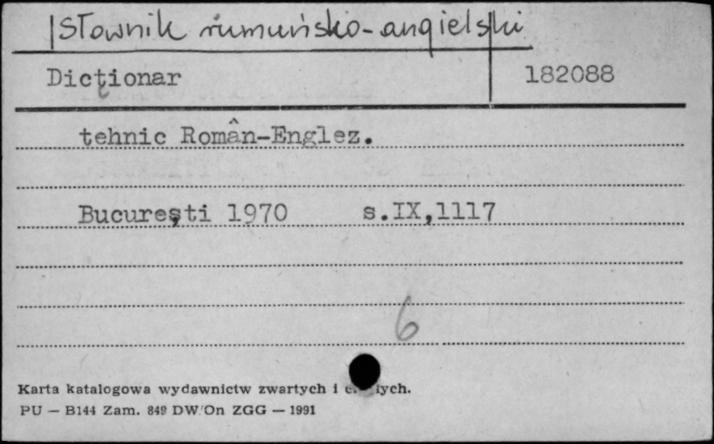 Słownik rumuńsko-angielski
Dicționar 182088
tehnic Român-Englez.
București 1970 s.IX,1117
6
Karta katalogowa wydawnictw zwartych i
PU — B144 Zam. 849 DW/On ZGG — 1991